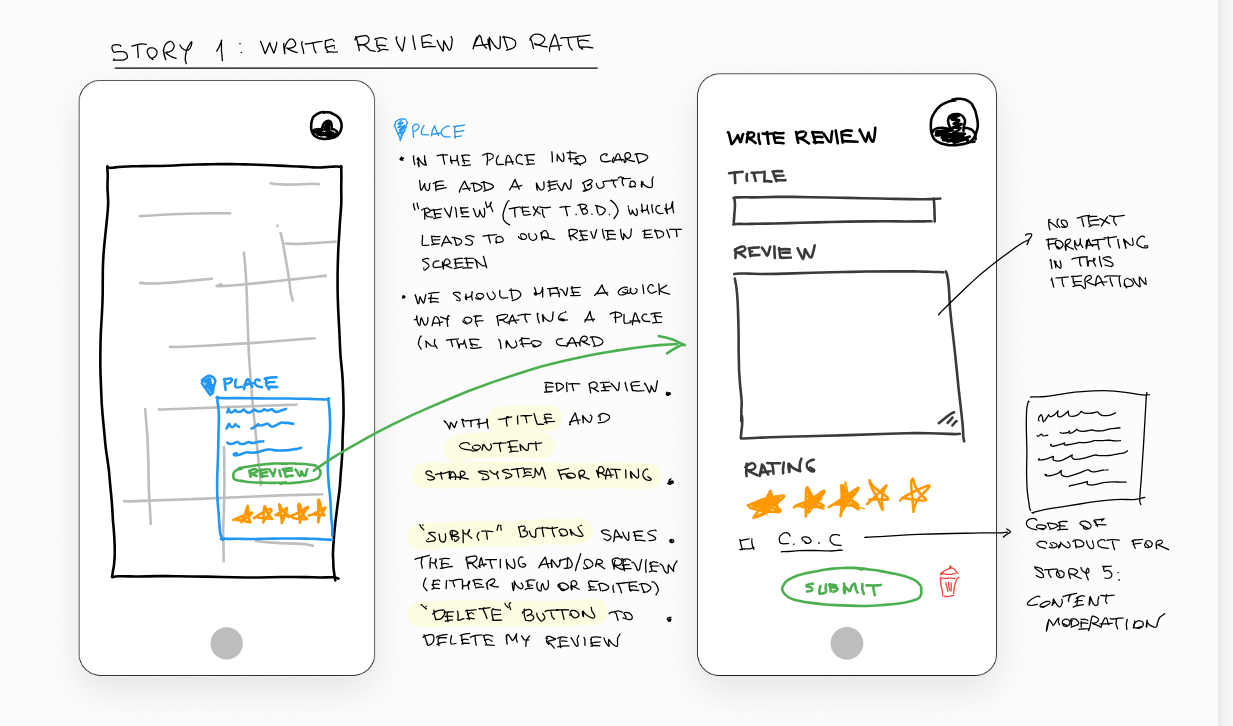 STORY 1: WRITE REVIEW AND RATE
PLACE
REVIEW
PLACE
• IN THE PLACE INFO CARD
WE ADD A NEW BUTTON
"REVIEW" (TEXT T.B.D.) WHICH
LEADS TO OUR REVIEW EDIT
SCREEN
• WE SHOULD HAVE A QUICK
WAY OF RATING A PLACE
IN THE INFO CARD
EDIT REVIEW •
WITH TITLE AND
CONTENT
STAR SYSTEM FOR RATING •
"SUBMIT" BUTTON SAVES •
THE RATING AND/OR REVIEW
(EITHER NEW OR EDITED)
"DELETE" BUTTON TO •
DELETE MY REVIEW
WRITE REVIEW
TITLE
REVIEW
RATING
C.O.C
SUBMIT
NO TEXT
FORMATTING
IN THIS
ITERATION
CODE OF
CONDUCT FOR
STORY 5:
CONTENT
MODERATION